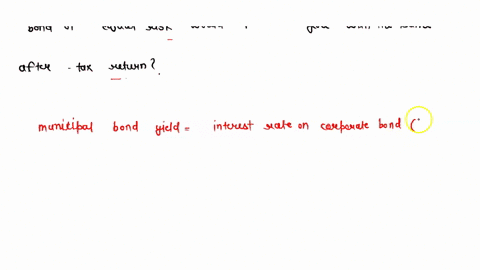 bond of equal risk would
give with the same
after - tax return?
municipal bond yield = interest rate on corporate bond (